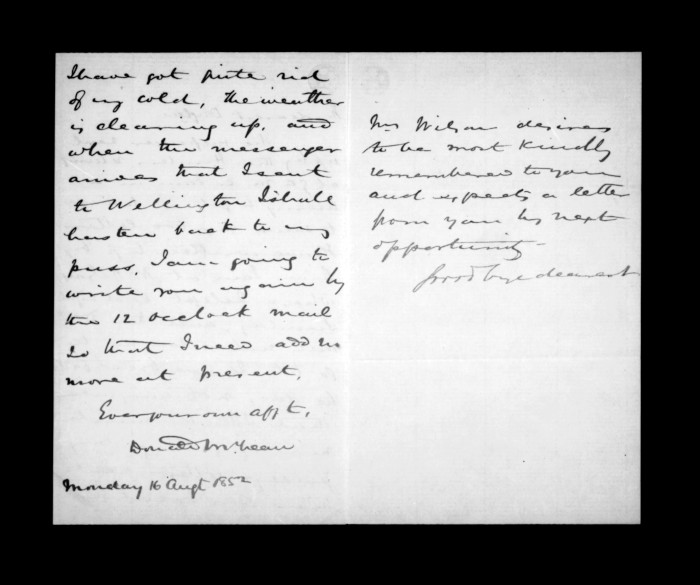 I have got quite rid
of my cold, the weather
is clearing up, and
when the messenger
arrives that I sent
to Wellington I shall
hasten back to my
puss, I am going to
write you again by
the 12 oclock mail
so that I need add no
more at present,
Ever your own afft,
Donald McLean
Monday 16 Augt 1852
Mrs Wilson desires
to be most kindly
remembered to you
and expects a letter
from you by next
opportunity -
Good bye dearest